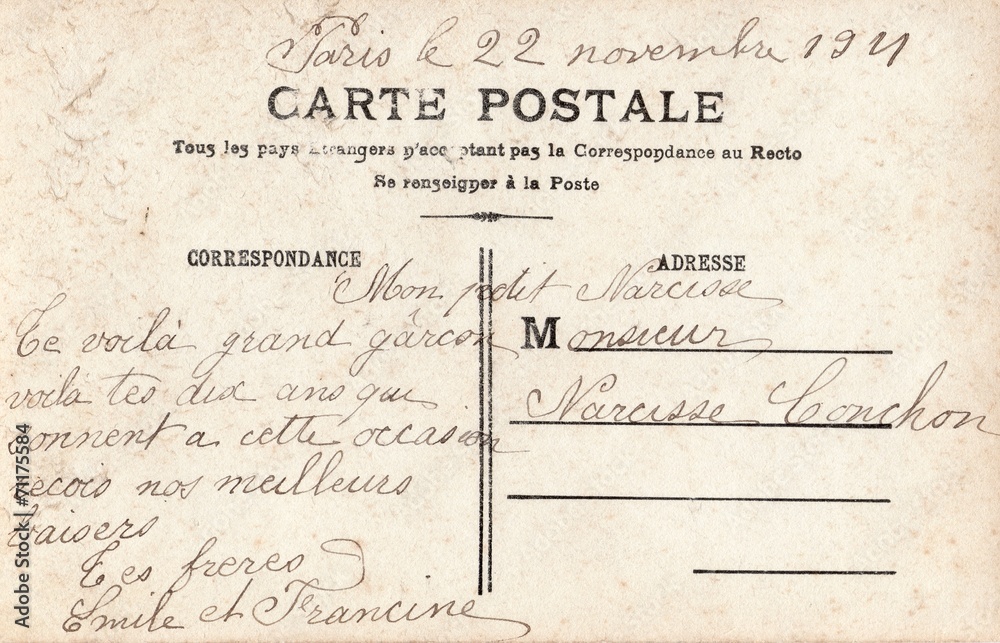 Paris le 22 novembre 1911
CARTE POSTALE
Tous les pays Etrangers n'acceptant pas la Correspondance au Recto
Se renseigner à la Poste
CORRESPONDANCE
ADRESSE
Mon petit Narcisse
Te voilà grand garçon
voilà tes dix ans qui
sonnent a cette occasion
recois nos meilleurs
baisers
Tes freres
Emile et Francine
Monsieur
Narcisse Conchon
Adobe Stock | #71175584